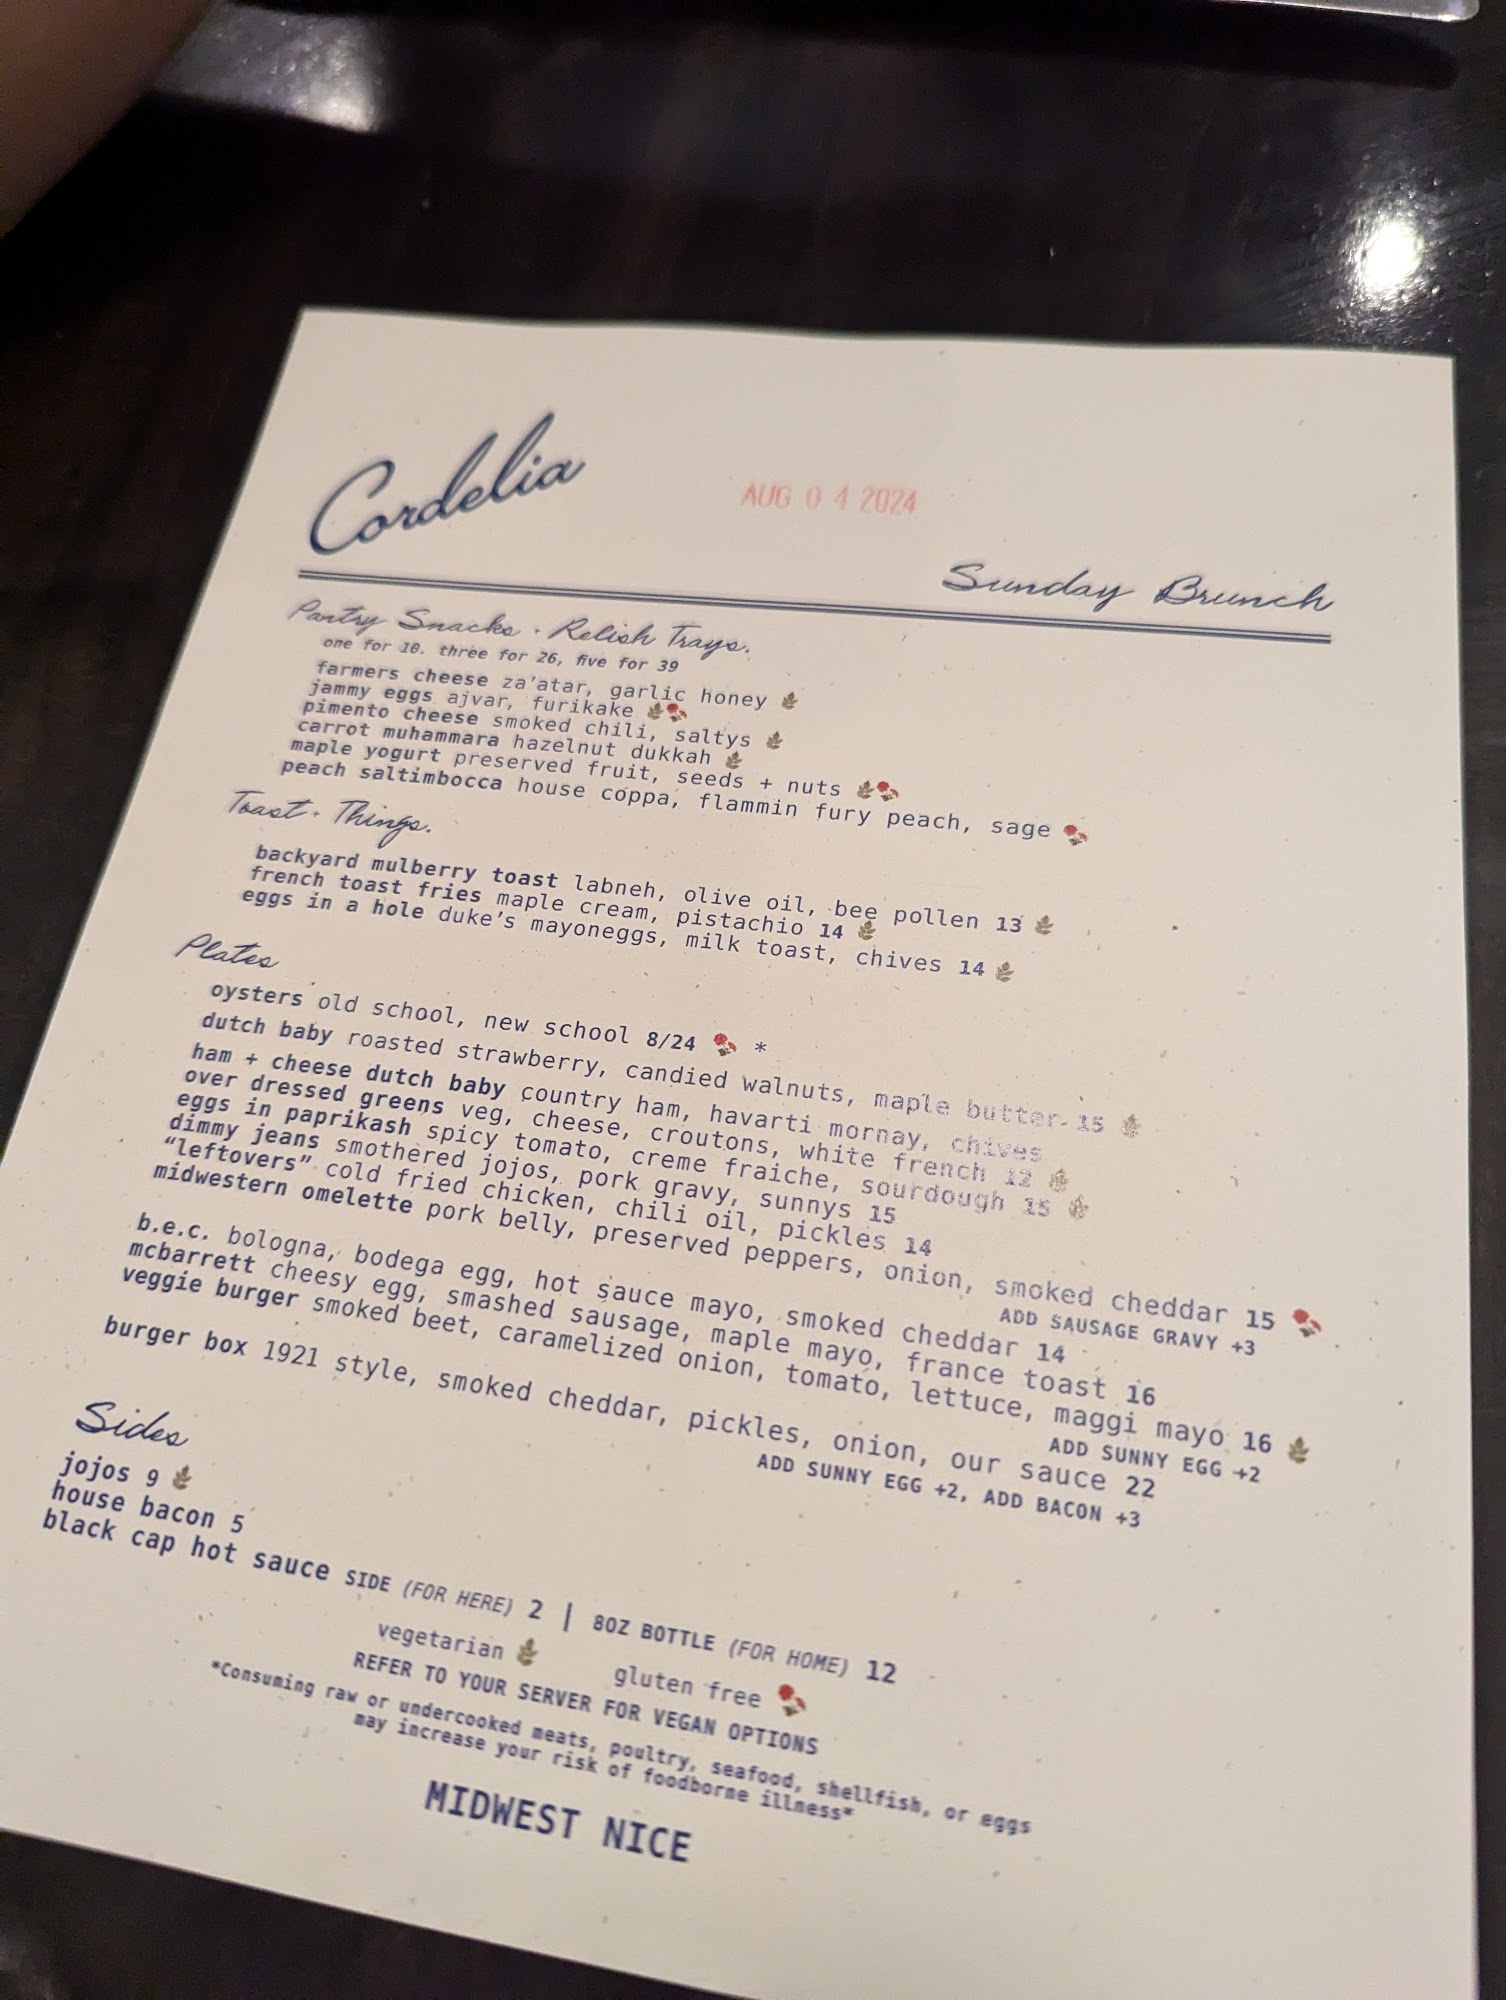 Cordelia
AUG 04 2024
Sunday Brunch
Pantry Snacks + Relish Trays.
one for 10. three for 26, five for 39
farmers cheese za'atar, garlic honey
jammy eggs ajvar, furikake
pimento cheese smoked chili, saltys
carrot muhammara hazelnut dukkah
maple yogurt preserved fruit, seeds + nuts
peach saltimbocca house coppa, flammin fury peach, sage
Toast + Things.
backyard mulberry toast labneh, olive oil, bee pollen 13
french toast fries maple cream, pistachio 14
eggs in a hole duke's mayoneggs, milk toast, chives 14
Plates
oysters old school, new school 8/24 *
dutch baby roasted strawberry, candied walnuts, maple butter 15
ham + cheese dutch baby country ham, havarti mornay, chives
over dressed greens veg, cheese, croutons, white french 12
eggs in paprikash spicy tomato, creme fraiche, sourdough 15
dimmy jeans smothered jojos, pork gravy, sunnys 15
"leftovers" cold fried chicken, chili oil, pickles 14
midwestern omelette pork belly, preserved peppers, onion, smoked cheddar 15
ADD SAUSAGE GRAVY +3
b.e.c. bologna, bodega egg, hot sauce mayo, smoked cheddar 14
mcbarrett cheesy egg, smashed sausage, maple mayo, france toast 16
veggie burger smoked beet, caramelized onion, tomato, lettuce, maggi mayo 16
ADD SUNNY EGG +2
burger box 1921 style, smoked cheddar, pickles, onion, our sauce 22
ADD SUNNY EGG +2, ADD BACON +3
Sides
jojos 9
house bacon 5
black cap hot sauce SIDE (FOR HERE) 2 | 8OZ BOTTLE (FOR HOME) 12
vegetarian gluten free
REFER TO YOUR SERVER FOR VEGAN OPTIONS
*Consuming raw or undercooked meats, poultry, seafood, shellfish, or eggs
may increase your risk of foodborne illness*
MIDWEST NICE